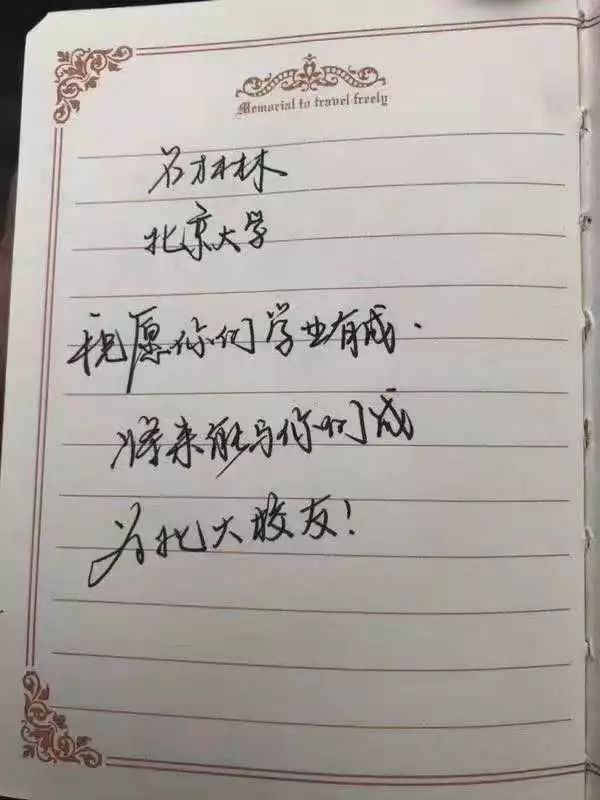 Memorial to travel freely
林
北京大学
祝愿你们学业有成.
将来能与你们成
为北大校友!